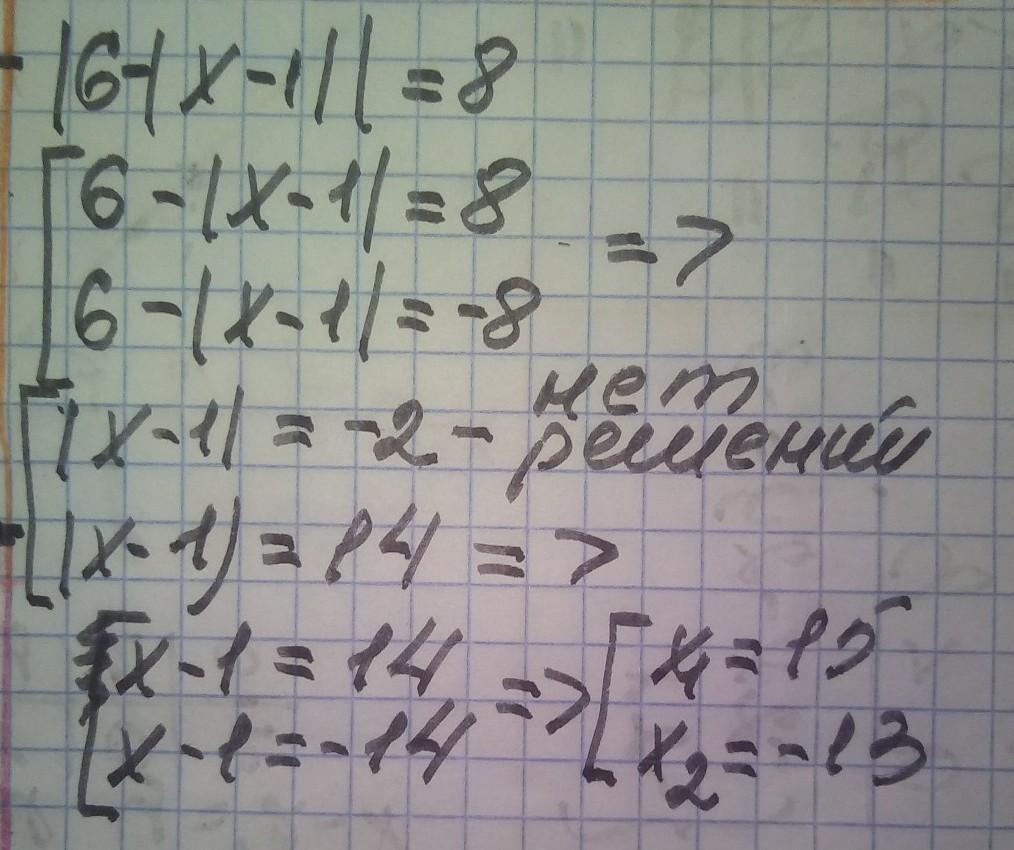 |6-|x-1|| = 8
6-|x-1| = 8
=>
6-|x-1| = -8
|x-1| = -2 - нет
решений
|x-1| = 14 =>
x-1 = 14
x-1 = -14
=>
x1 = 15
x2 = -13